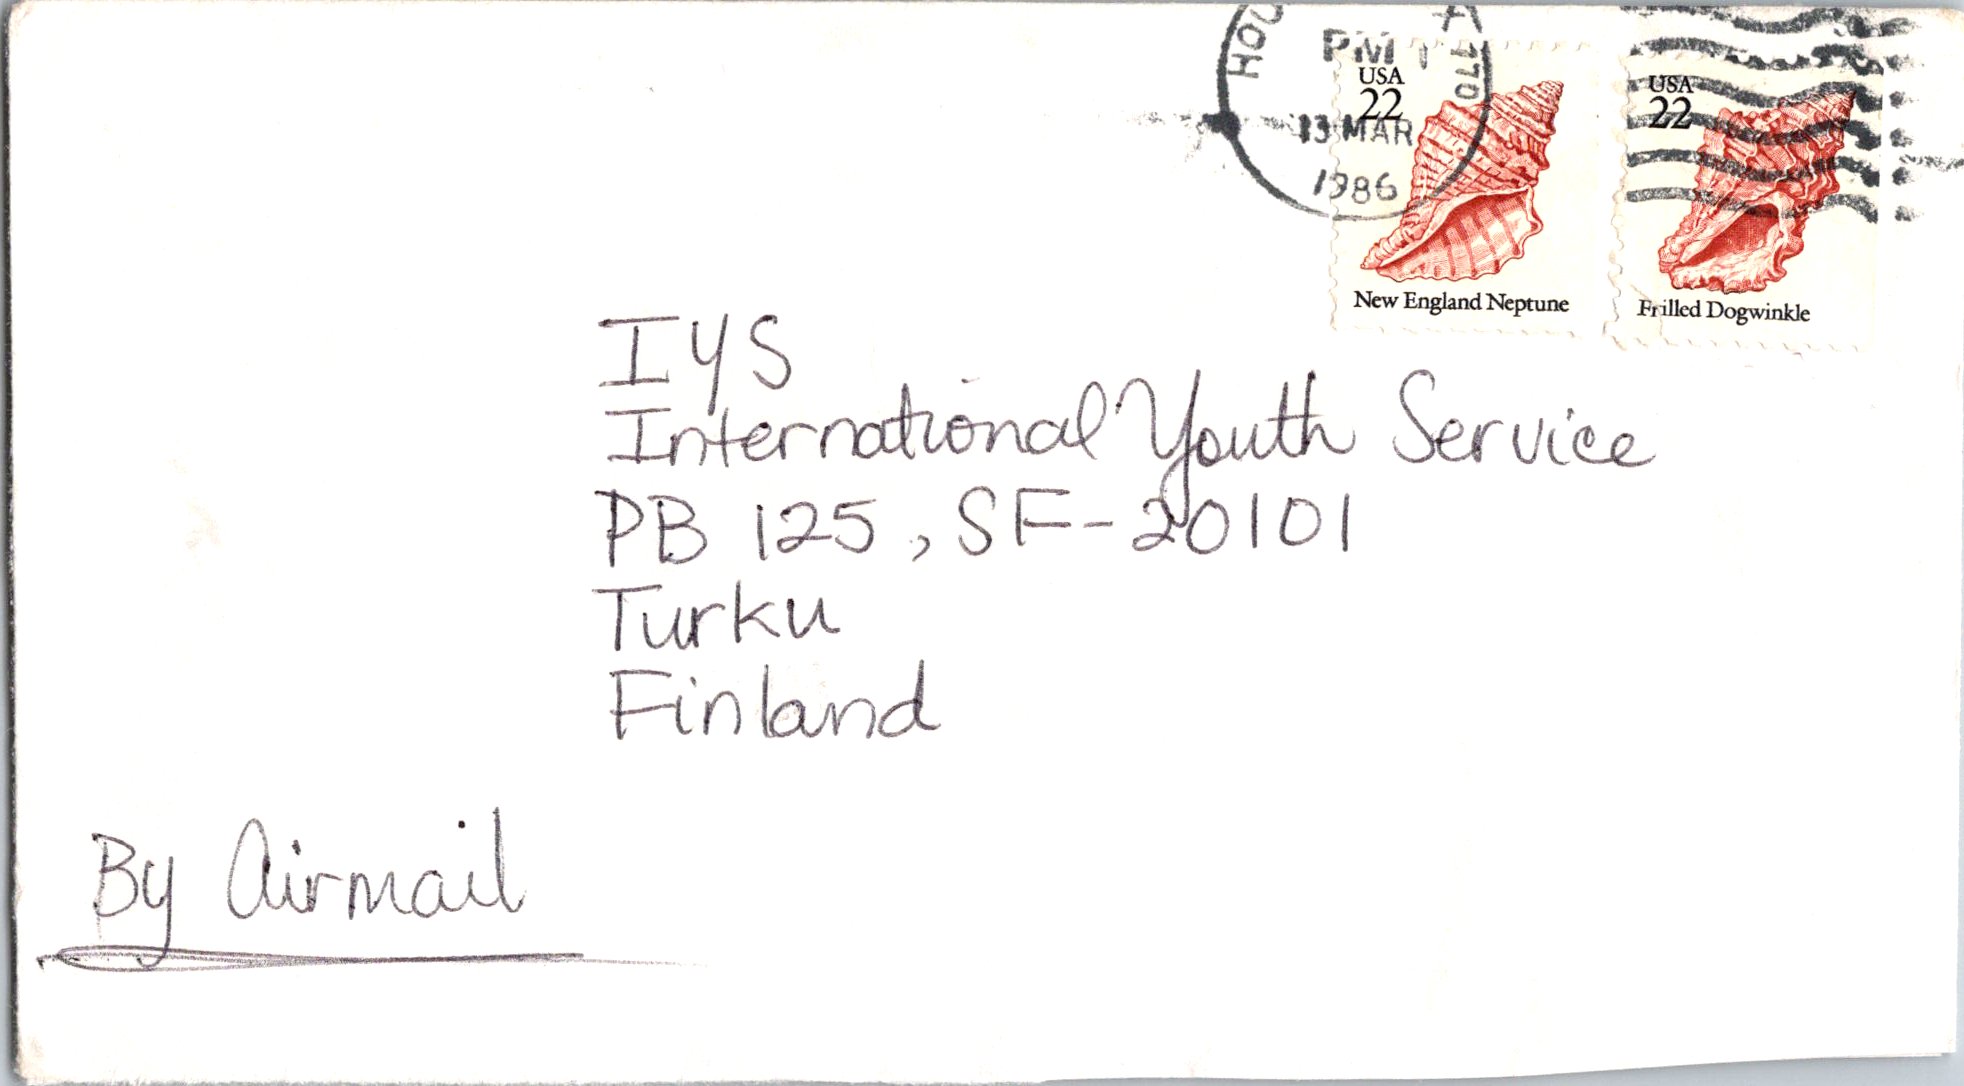 PM
13 MAR
1986
USA
22
New England Neptune
USA
22
Frilled Dogwinkle
IYS
International Youth Service
PB 125, SF-20101
Turku
Finland
By Airmail